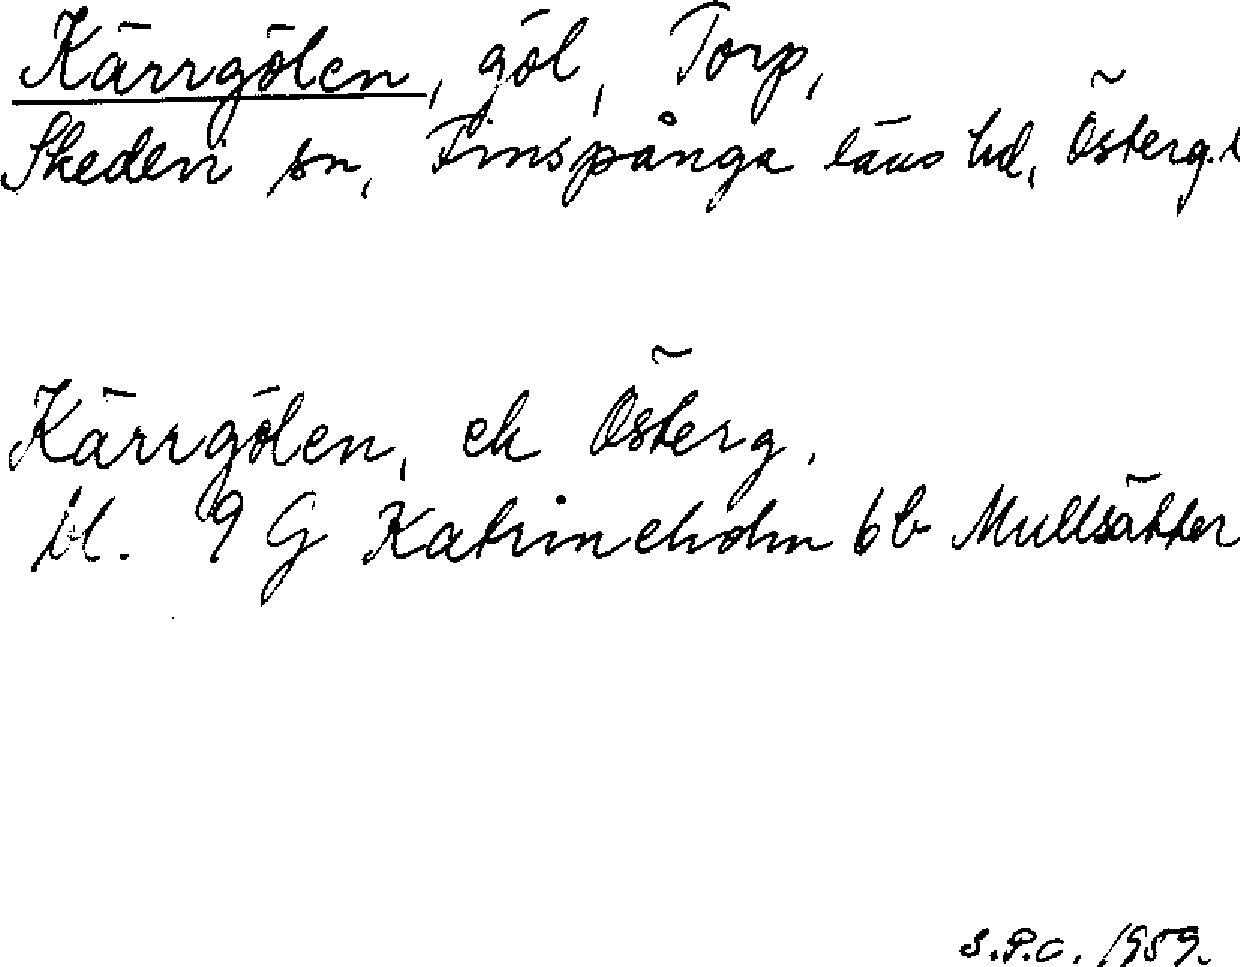 Kärrgölen, göl, Torp,
Skedevi sn, Finspånga läns hd, Österg.l
Kärrgölen, ek Österg.
bl. 9 G Katrineholm 6b Mullsätter
S.P.C. 1959.